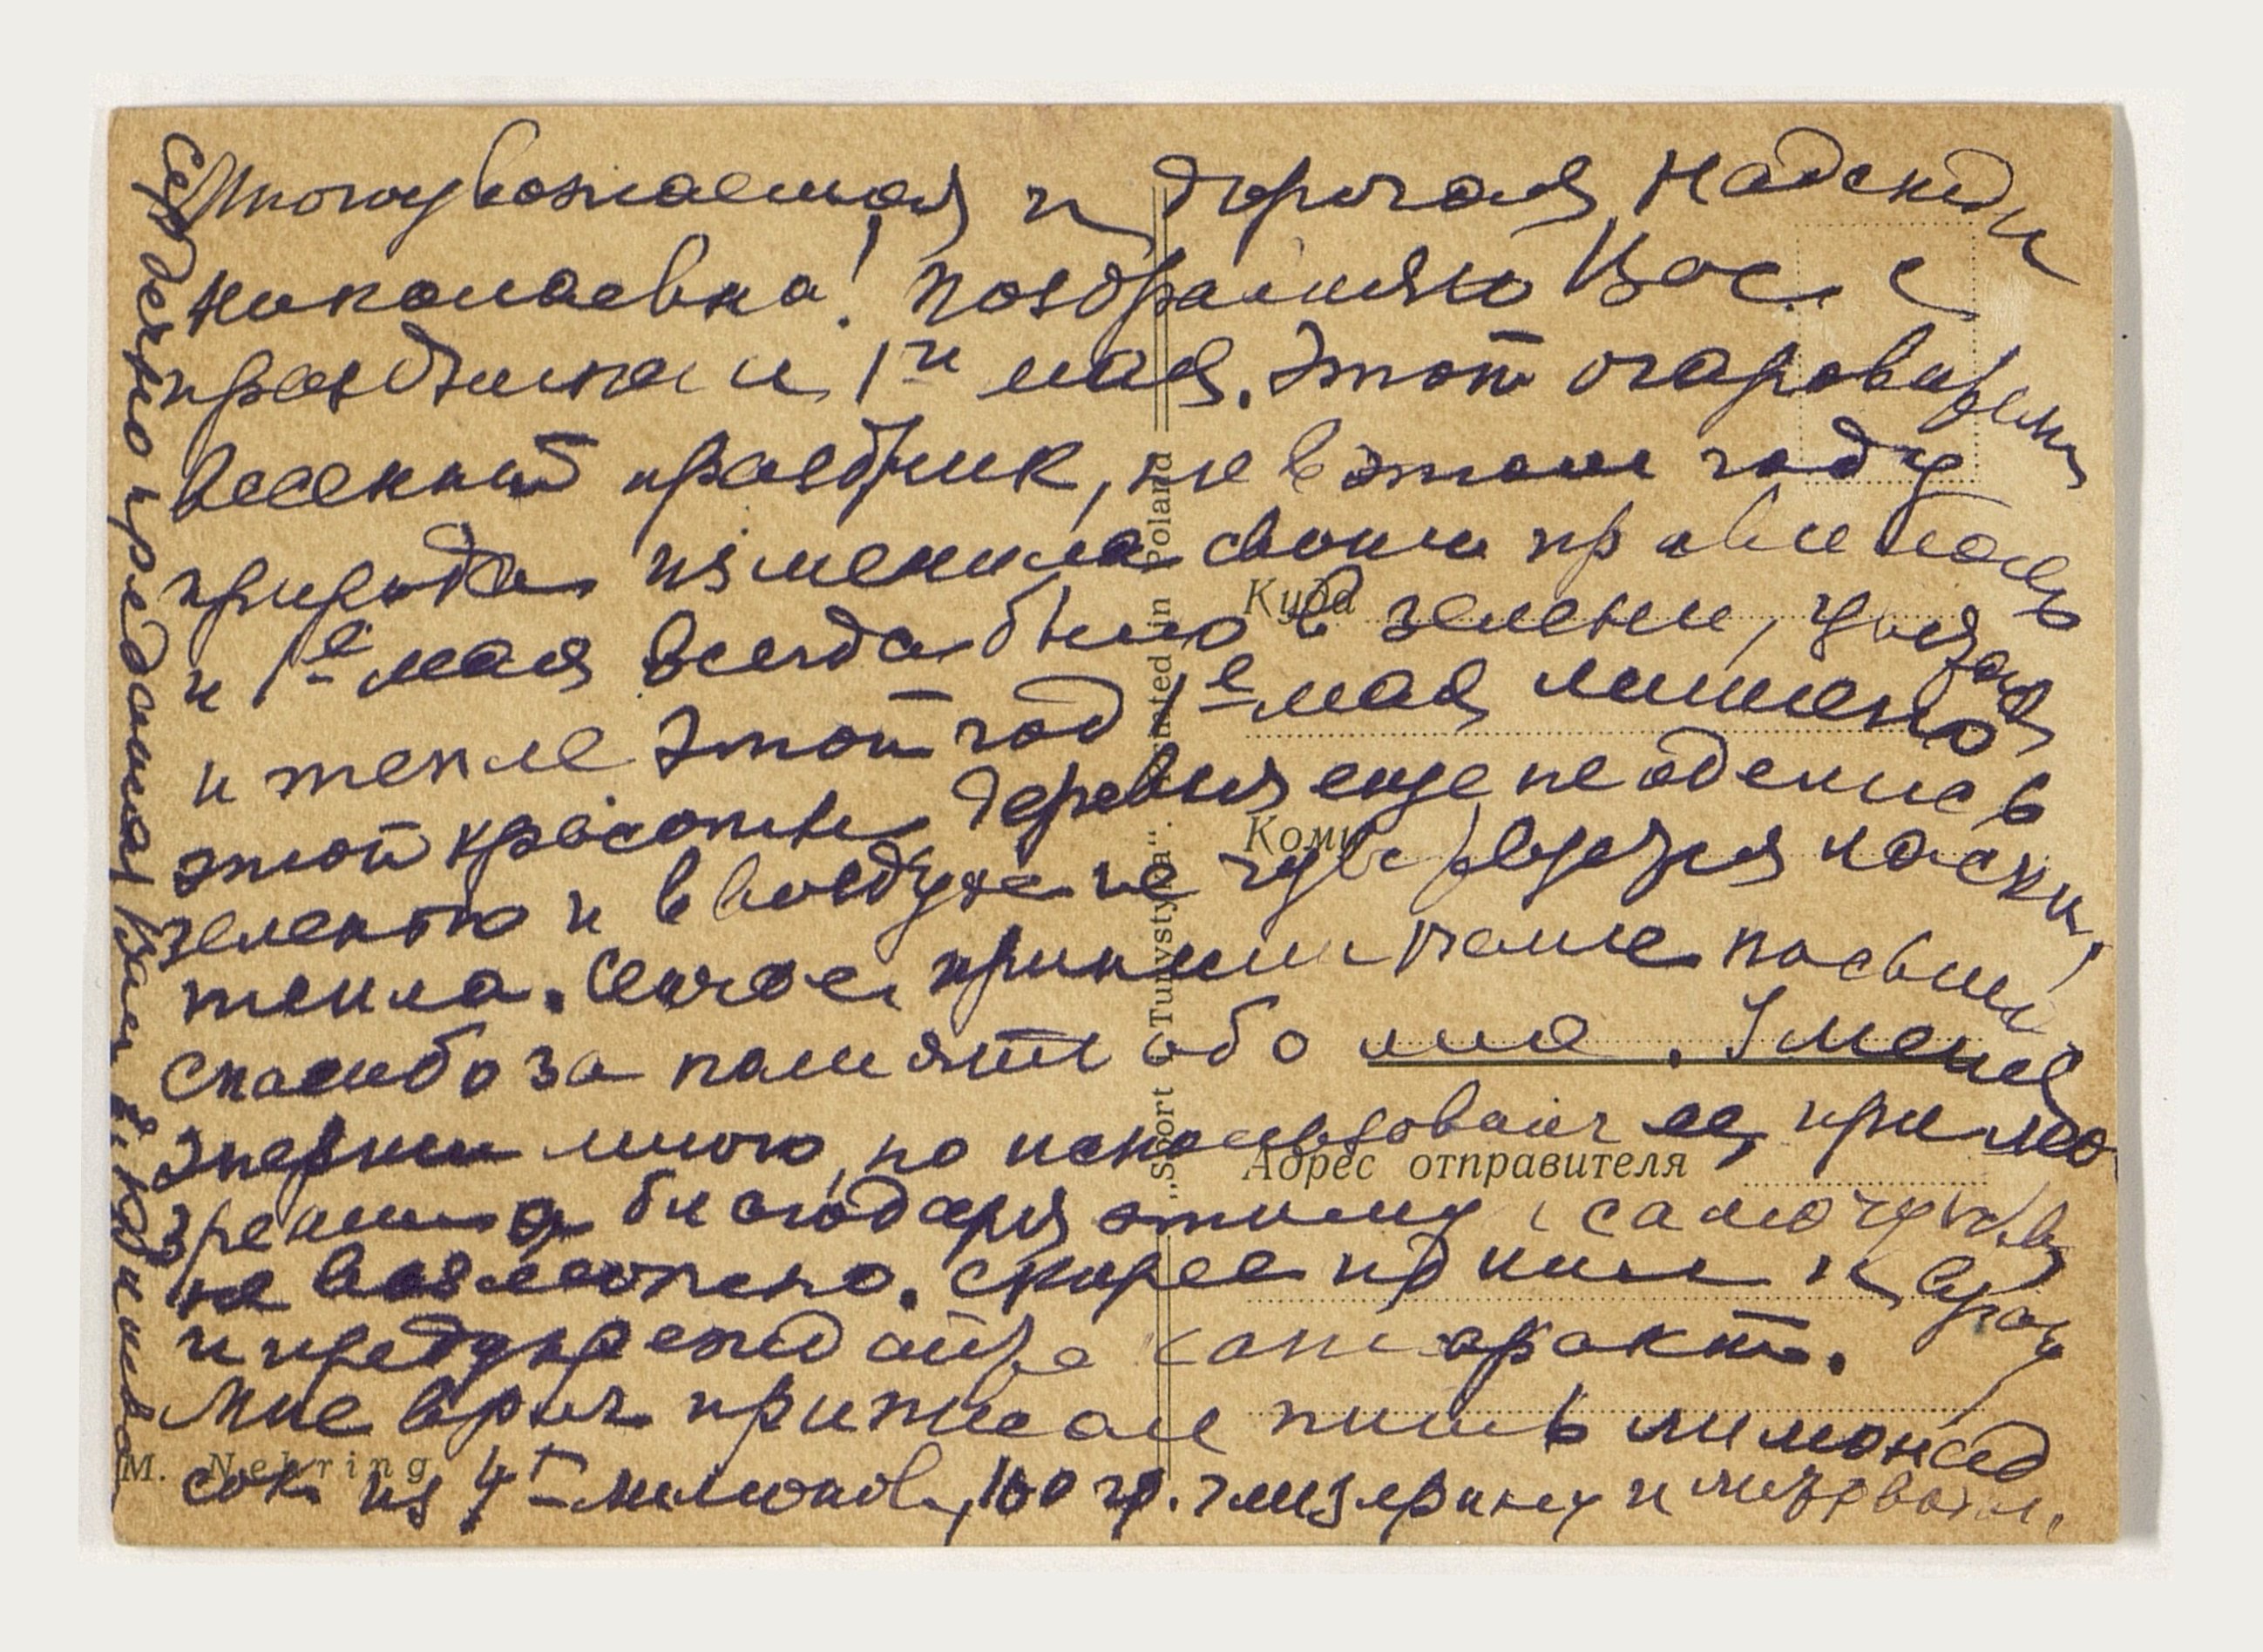 Многоуважаемая и дорогая Надежда
Николаевна! Поздравляю Вас с
праздником 1м мая. Этот очаровательный
весенний праздник, но в этом году
природа изменила своим правилам
и 1е мая всегда было в зелени, цветах
и тепле этот год 1е мая лишено
этой красоты деревья еще не оделись
зеленью и в воздухе не чувствуется ласки,
тепла. Сейчас
спасибо за память обо мне. У меня
энергии много, но использовать ее, при моем
зрении и благодаря этому самочувствию
не возможно. Скорее идите к врачу
и предупреждайте катаракт.
Мне врач приписал пить лимонад
сок из 4х лимонов, 100 гр. глицерину и
Сердечно преданная Вам
Куда
Кому
Адрес отправителя
„Sport i Turystyka“. Printed in Poland
M. Nehring